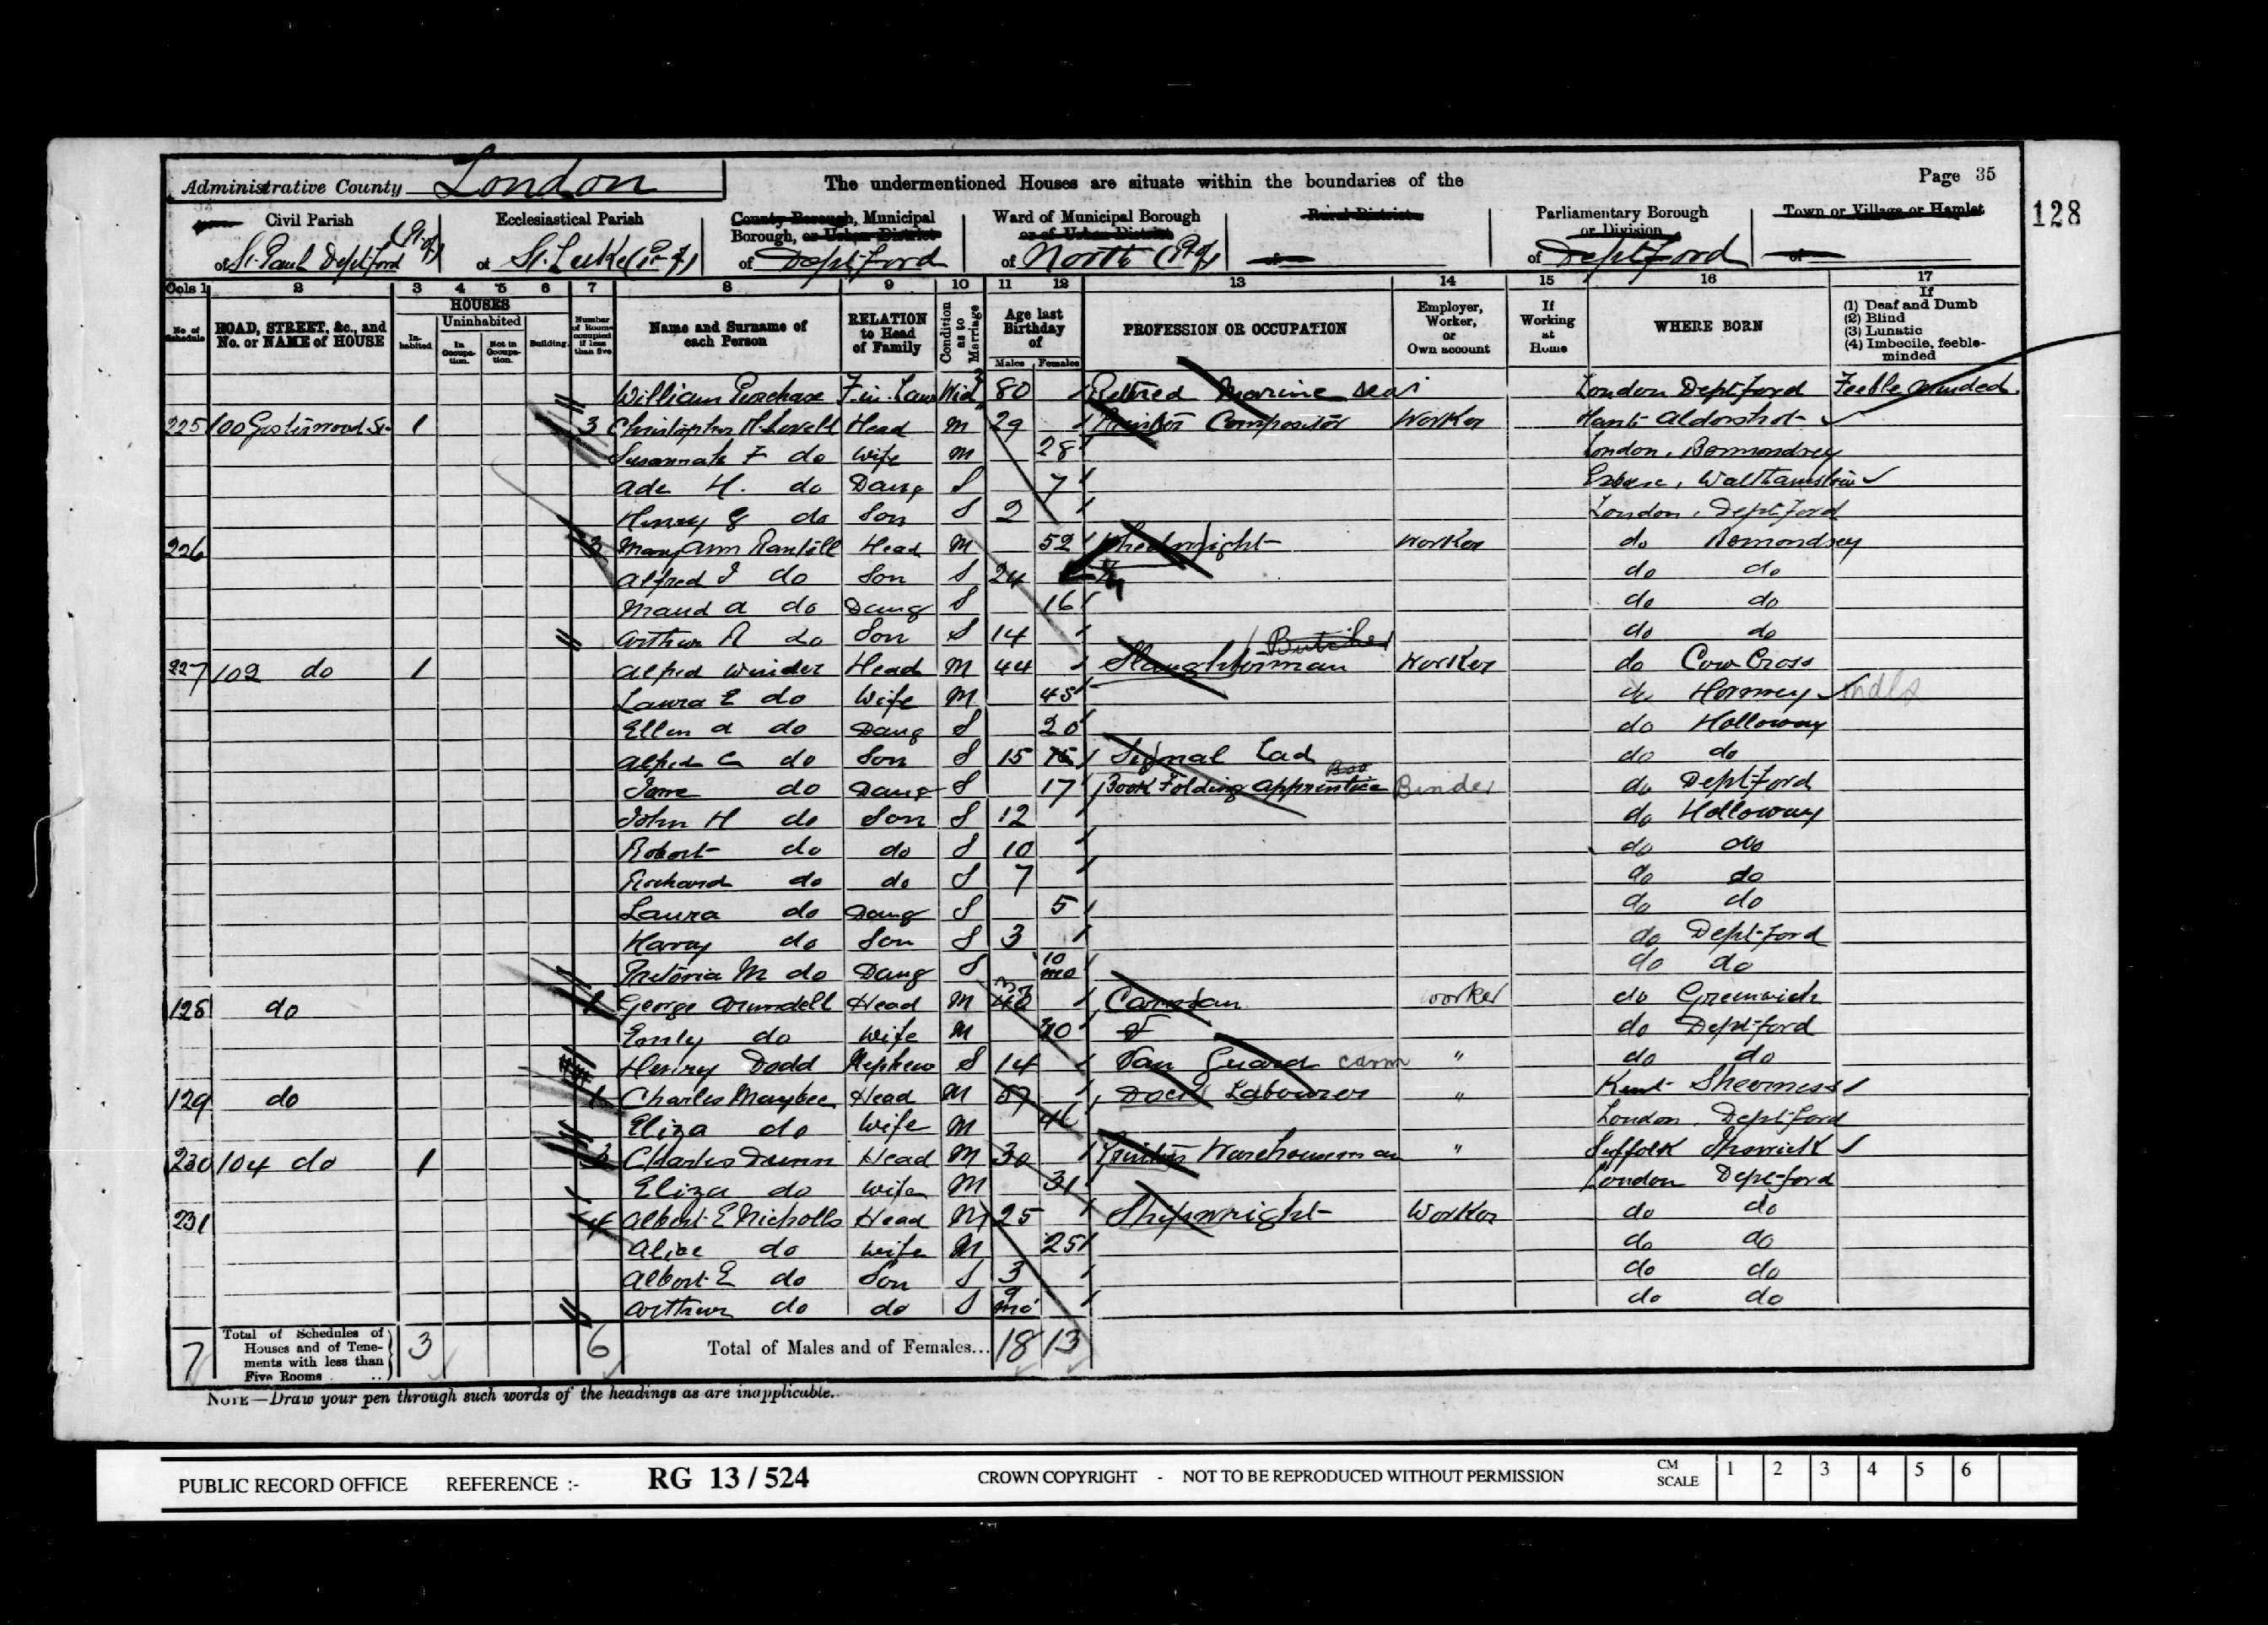 Page 35
128
Administrative County London
The undermentioned Houses are situate within the boundaries of the
Civil Parish
of St. Paul Deptford (Pt of)
Ecclesiastical Parish
of St. Luke (Pt of)
County Borough, Municipal Borough, or Urban District
of Deptford
Ward of Municipal Borough or of Urban District
of North (Pt of)
Rural District
of
Parliamentary Borough or Division
of Deptford
Town or Village or Hamlet
of
Cols 1 2 3 4 5 6 7 8 9 10 11 12 13 14 15 16 17
No. of Schedule
ROAD, STREET, &c., and No. or NAME of HOUSE
HOUSES
In-habited
Uninhabited
In Occupa-tion.
Not in Occupa-tion.
Building.
Number of Rooms occupied if less than five
Name and Surname of each Person
RELATION to Head of Family
Condition as to Marriage
Age last Birthday of
Males Females
PROFESSION OR OCCUPATION
Employer, Worker, or Own account
If Working at Home
WHERE BORN
If
(1) Deaf and Dumb
(2) Blind
(3) Lunatic
(4) Imbecile, feeble-minded
William Purchase F.in.Law Wid 80 Retired Marine London Deptford Feeble minded
225 100 Gosterwood St. 1 3 Christopher Head M 29 Printer Compositor Worker Hants Aldershot
Susannah F do Wife M 28 London, Bermondsey
Ada H. do Daug S 7 Walthamstow
Henry G do Son S 2 London, Deptford
226 3 Mary Ann Head M 52 Worker do
Alfred J do Son S 24 do do
Maud A do Daug S 16 do do
Arthur R do Son S 14 do do
227 102 do 1 Alfred Winder Head M 44 Slaughterman Butcher Worker do Cow Cross
Laura E do Wife M 45 do Hornsey
Ellen A do Daug S 20 do Holloway
Alfred C do Son S 15 15 Signal Lad do do
Jane do Daug S 17 Book Folding Apprentice Boo Binder do Deptford
John H do Son S 12 do Holloway
Robert do do S 10 do do
Richard do do S 7 do do
Laura do Daug S 5 do do
Harry do Son S 3 do Deptford
Pretoria M do Daug S 10 mo do do
128 do 1 George Arundell Head M 40 Carman worker do Greenwich
Emily do Wife M 40 do Deptford
Henry Dodd Nephew S 14 Van Guard carm " do do
129 do 1 Charles Maybee Head M Dock Labourer " Kent Sheerness
Eliza do Wife M 46 London, Deptford
230 104 do 1 3 Charles Dunn Head M 30 Printers Warehouseman " Suffolk Ipswich
Eliza do Wife M 31 London Deptford
231 4 Albert E Nicholls Head M 25 Shipwright Worker do do
Alice do Wife M 25 do do
Albert E do Son S 3 do do
Arthur do do S 9 mo do do
7 Total of Schedules of Houses and of Tene-ments with less than Five Rooms .. 3 6 Total of Males and of Females... 18 13
NOTE—Draw your pen through such words of the headings as are inapplicable.
PUBLIC RECORD OFFICE REFERENCE :- RG 13 / 524 CROWN COPYRIGHT - NOT TO BE REPRODUCED WITHOUT PERMISSION CM SCALE 1 2 3 4 5 6